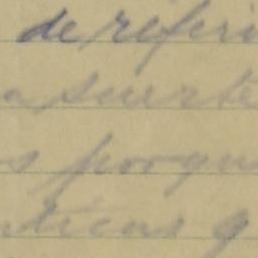 de refiri
a suerte
s porqu
nticas q